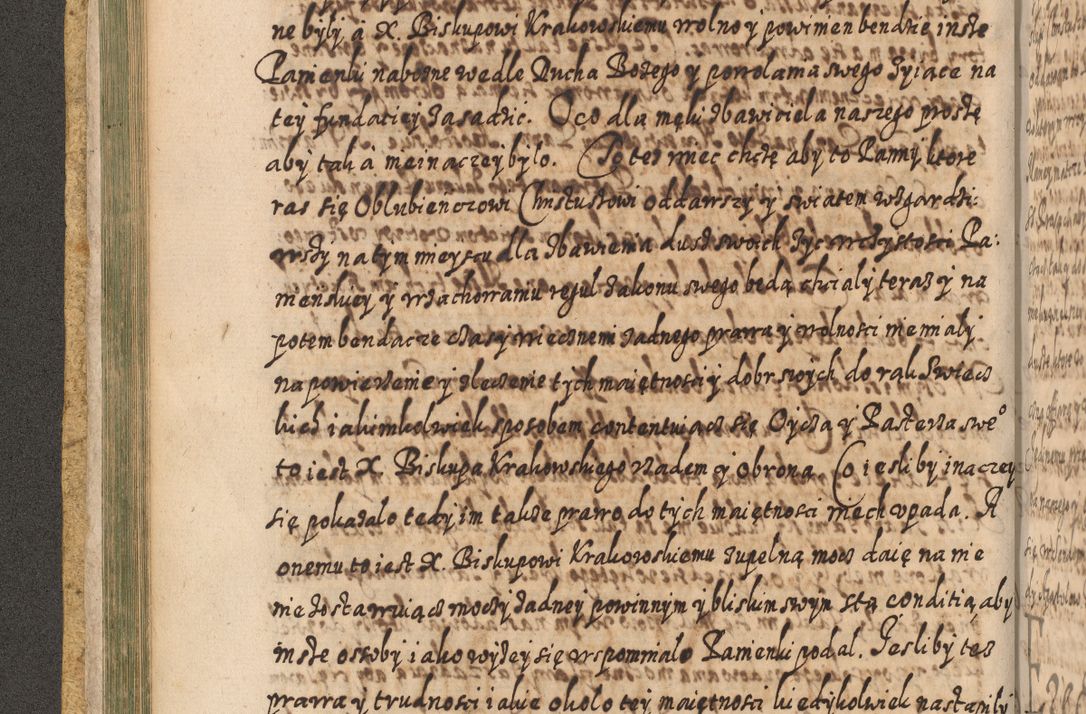 ne były, á X. Biskupowi Krakowskiemu wolno y powinien bendzie insze
Panienki nabozne wedle Ducha Bozego y powolania swego zyiące na
tey fundaciey zasadzić. O co dla męki zbawiciela naszego proszę
aby tak á nieinaczey było. Po tez wiec chcę aby to Panny ktore
raz się Oblubienczowi Christusowi oddawszy y swiatem wzgardzi:
wszy na tym mieyscu dla zbawienia dusz swoich zyc w czystosci Pa:
nienskiey y w zachowaniu regul zakonu swego bedą chciały teraz y na
potem bendacze czasy wiecznemi zadnego prawa y wolnosci nie miały
na powierzenie y zleczenie tych maiętnosci y dobr swych do rąk Swiecz
kich iakimkolwiek sposobem contentuiącz się Oycza y Pasterza sweº
to iest X. Biskupa Krakowskiego rządem y obroną. Co iesliby inaczey
się pokazalo tedy im takze prawo do tych maiętnosci niech vpada. A
onemu to iest X. Biskupowi Krakowskiemu zupelną mocz daię na nie
nie zostawuiącz moczy zadney powinnym y bliskim swym s tą conditią, aby
insze osoby iako wyzey się wspomnialo Panienki podal. Jesliby tez
prawa y trudnosci iakie okolo tey maiętnosci kiedykolwiek nastąpiły